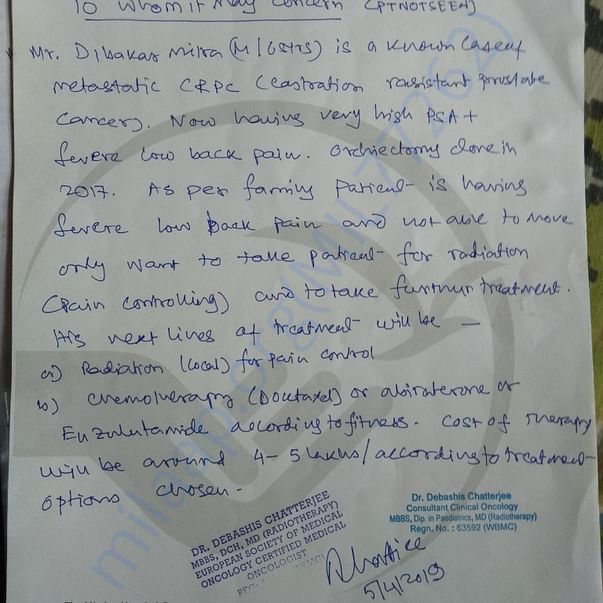 To Whom it May Concern (PTNOTSEEN)
Mr. Dibakar Mitra (M/65YTS) is a known case of
metastatic CRPC (castration rasistant prostate
cancer). Now having very high PSA +
severe low back pain. Orchiectomy done in
2017. As per family patient is having
severe low back pain and not able to move
only want to take patient for radiation
(Pain controlling) and to take further treatment.
His next lines of treatment will be —
a) Radiation (local) for pain control
b) chemotherapy (Doutaxel) or abiraterone or
Enzulutamide according to fitness. Cost of therapy
will be around 4-5 lakhs/according to treatment
options chosen.
DR. DEBASHIS CHATTERJEE
MBBS, DCH, MD (RADIOTHERAPY)
EUROPEAN SOCIETY OF MEDICAL
ONCOLOGY CERTIFIED MEDICAL
ONCOLOGIST
Dr. Debashis Chatterjee
Consultant Clinical Oncology
MBBS, Dip. in Paediatrics, MD (Radiotherapy)
Regn. No. : 63592 (WBMC)
5/4/2019
milaap.org(MIL77262)